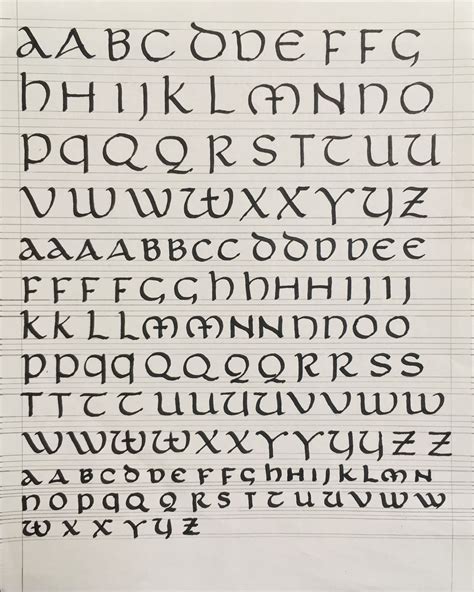 AABCDDEEFFG
HHIJKLMMNNO
PQQQQRSTTUU
VWWWXXYYZ
AAAABBCCDDDDEE
FFFFGGHHHHIJIJ
KKLLMMNNNNOO
PPQQQQQQRRSS
TTTTUUUUVVWW
WWWWXXYYYYZZ
AABCDDEEFFGHHIJKLMN
NOPQQQRSTTUUVWW
WXXYYZ